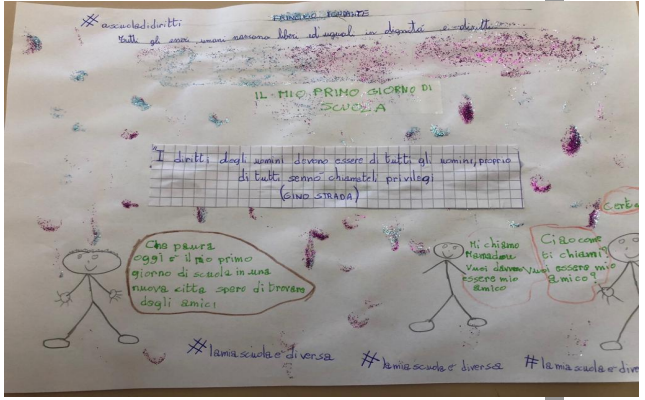 #ascuoladidiritti
Tutti gli esseri umani nascono liberi ed uguali in dignità e diritti
IL MIO PRIMO GIORNO DI
SCUOLA
"I diritti degli uomini devono essere di tutti gli uomini, proprio
di tutti sennò chiamateli privilegi
(GINO STRADA)
Che paura
oggi è il mio primo
giorno di scuola in una
nuova città spero di trovare
degli amici
Mi chiamo
Mamadou
Vuoi
essere mio
amico
Ciao come
ti chiami?
Vuoi essere mio
amico?
Certo
#lamiascuolaèdiversa
#lamiascuolaèdiversa
#lamiascuolaèdive